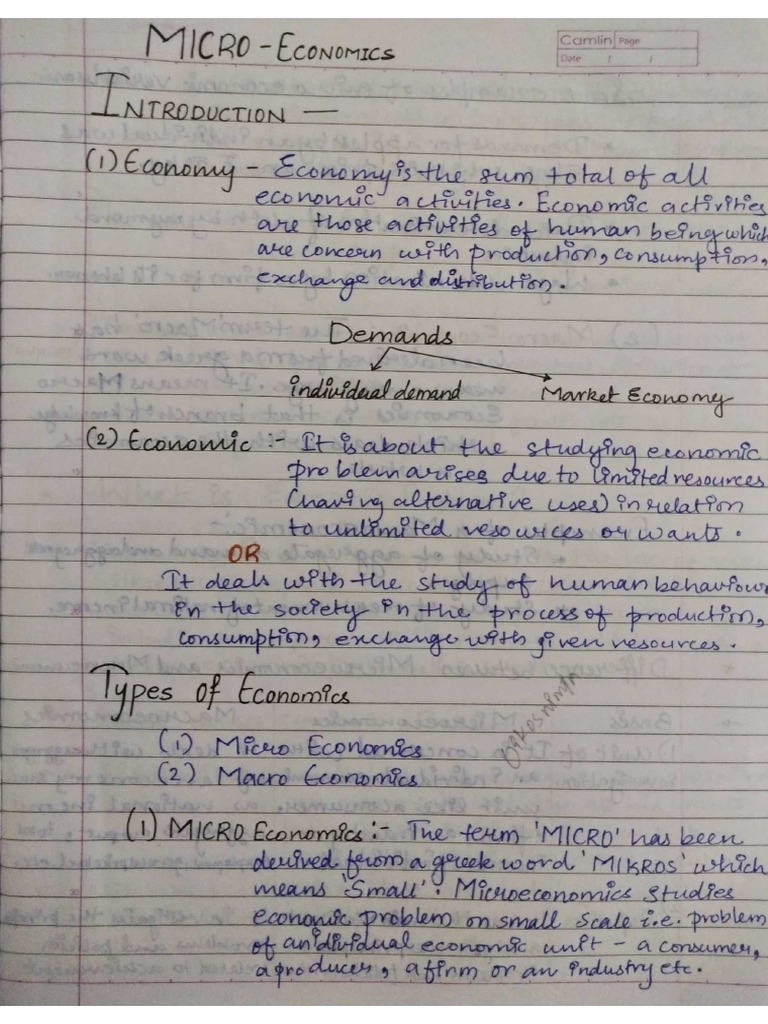 MICRO-ECONOMICS
Camlin Page
Date / /
INTRODUCTION —
(1) Economy - Economy is the sum total of all
economic activities. Economic activities
are those activities of human being which
are concern with production, consumption,
exchange and distribution.
Demands
individual demand Market Economy
(2) Economic :- It is about the studying economic
problem arises due to limited resources
(having alternative uses) in relation
to unlimited resources or wants.
OR
It deals with the study of human behaviour
in the society in the process of production,
consumption, exchange with given resources.
Types of Economics
(1) Micro Economics
(2) Macro Economics
(1) MICRO Economics :- The term 'MICRO' has been
derived from a greek word 'MIKROS' which
means 'Small'. Microeconomics studies
economic problem on small scale i.e. problem
of anidividual economic unit - a consumer,
a producer, a firm or an industry etc.